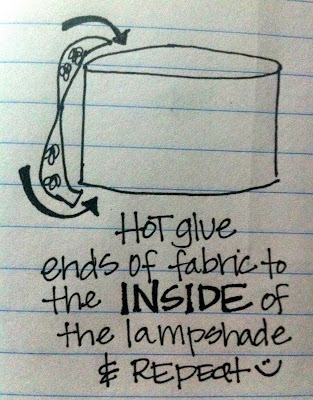 Hot glue
ends of fabric to
the INSIDE of
the lampshade
& REPEAT